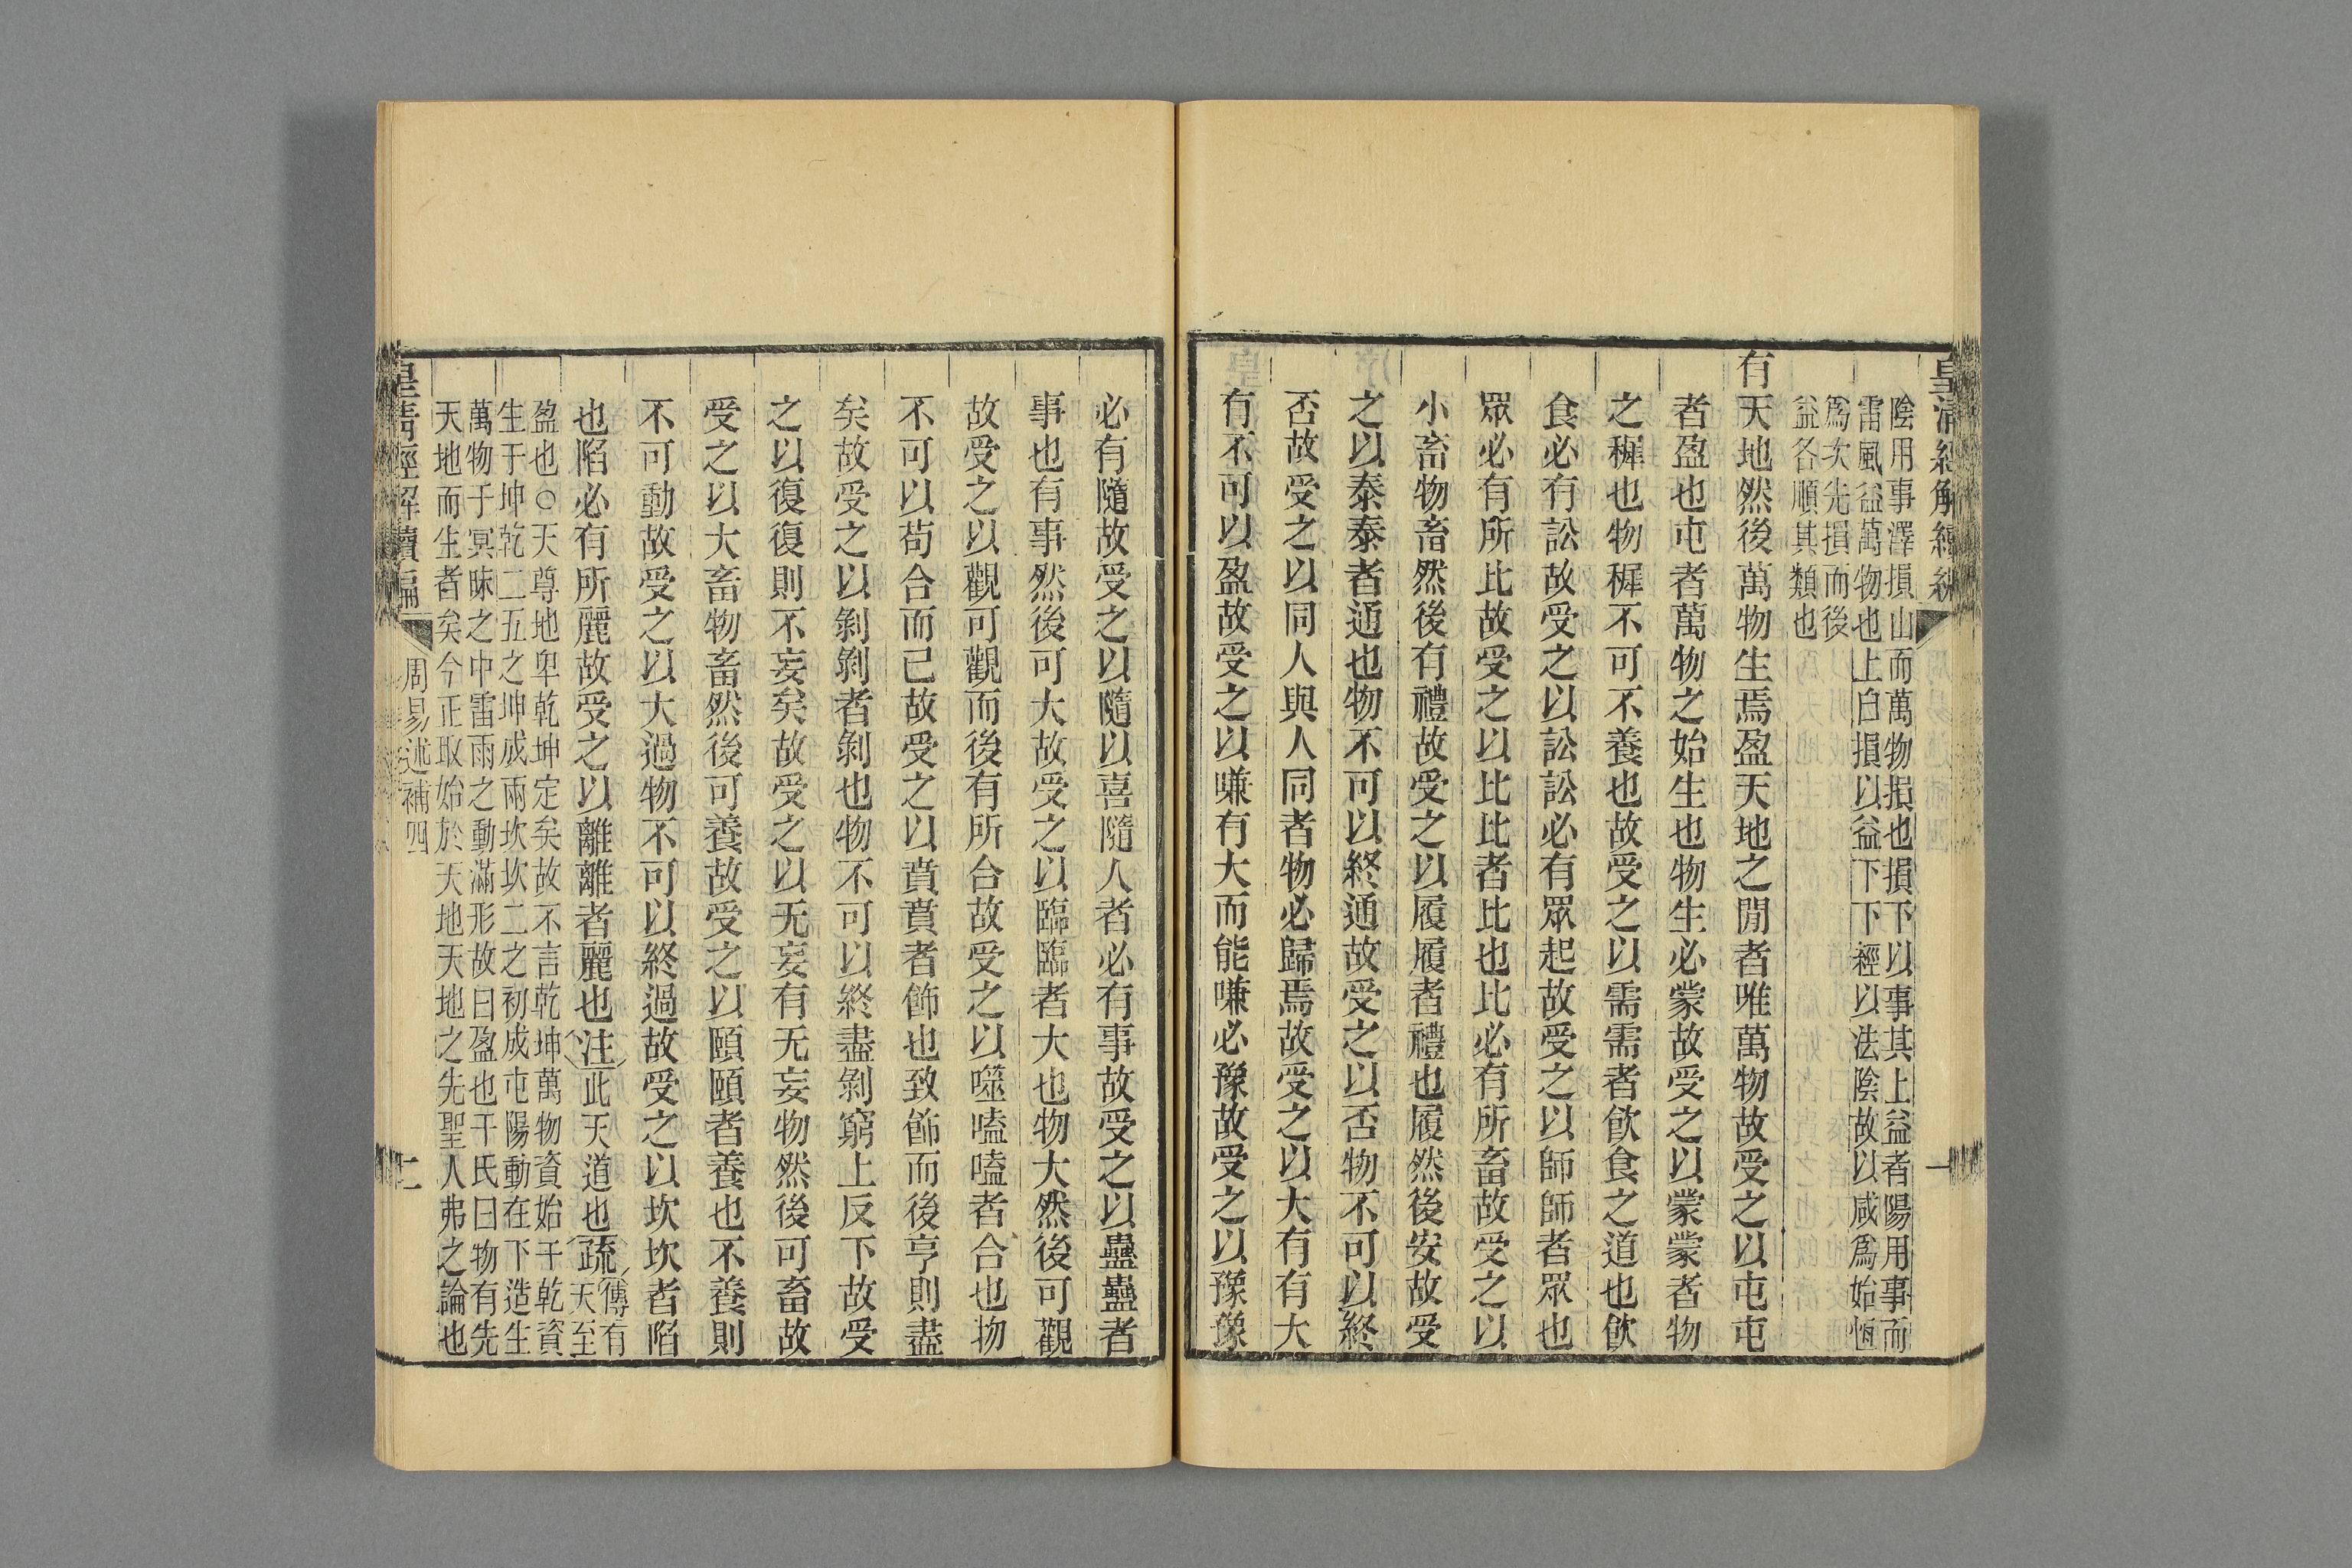 皇清經解續編
陰用事澤損山而萬物損也損下以事其上益者陽用事而
雷風益萬物也上自損以益下下經以法陰故以咸爲始恆
爲次先損而後
益各順其類也
有天地然後萬物生焉盈天地之閒者唯萬物故受之以屯屯
者盈也屯者萬物之始生也物生必蒙故受之以蒙蒙者物
之穉也物穉不可不養也故受之以需需者飮食之道也飮
食必有訟故受之以訟訟必有眾起故受之以師師者眾也
眾必有所比故受之以比比者比也比必有所畜故受之以
小畜物畜然後有禮故受之以履履者禮也履然後安故受
之以泰泰者通也物不可以終通故受之以否物不可以終
否故受之以同人與人同者物必歸焉故受之以大有有大
有不可以盈故受之以嗛有大而能嗛必豫故受之以豫豫
必有隨故受之以隨以喜隨人者必有事故受之以蠱蠱者
事也有事然後可大故受之以臨臨者大也物大然後可觀
故受之以觀可觀而後有所合故受之以噬嗑嗑者合也物
不可以苟合而已故受之以賁賁者飾也致飾而後亨則盡
矣故受之以剝剝者剝也物不可以終盡剝窮上反下故受
之以復復則不妄矣故受之以无妄有无妄物然後可畜故
受之以大畜物畜然後可養故受之以頤頤者養也不養則
不可動故受之以大過物不可以終過故受之以坎坎者陷
也陷必有所麗故受之以離離者麗也注此天道也疏傳有
天至
盈也○天尊地卑乾坤定矣故不言乾坤萬物資始于乾資
生于坤乾二五之坤成兩坎坎二之初成屯陽動在下造生
萬物于冥昧之中雷雨之動滿形故曰盈也干氏曰物有先
天地而生者矣今正取始於天地天地之先聖人弗之論也
皇清經解續編
周易述補四
二